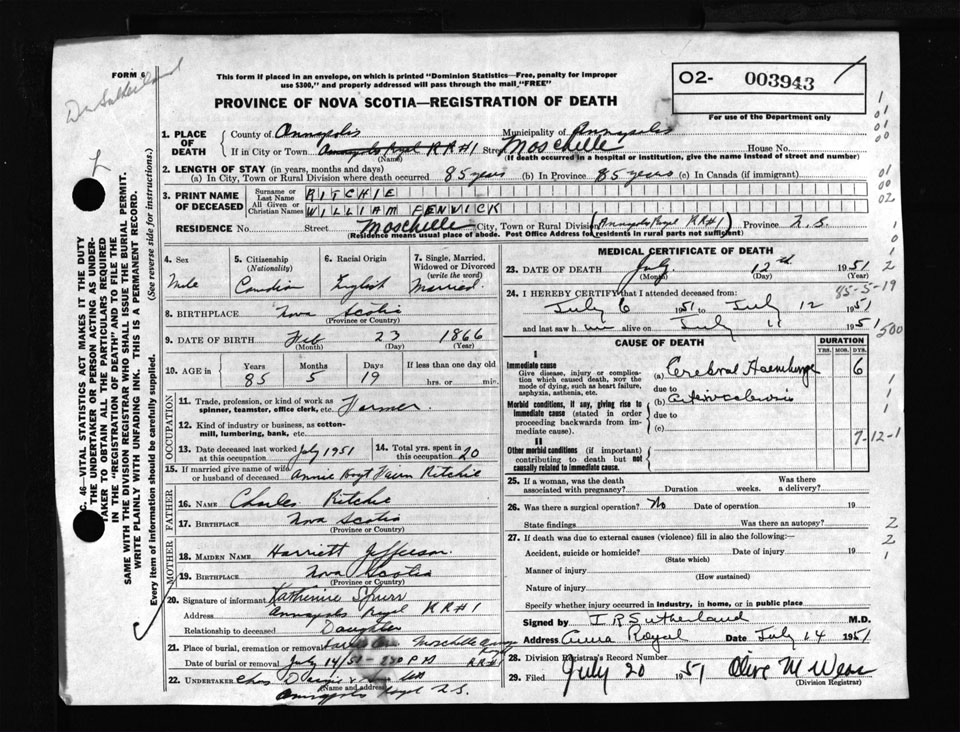 FORM 6
Dr Sutherland
This form if placed in an envelope, on which is printed "Dominion Statistics—Free, penalty for improper use $300," and properly addressed will pass through the mail "FREE"
O2- 003943
For use of the Department only
PROVINCE OF NOVA SCOTIA—REGISTRATION OF DEATH
1. PLACE OF DEATH
County of Annapolis Municipality of Annapolis
If in City or Town Annapolis Royal RR#1 Street Moschelle House No.
(Name) (If death occurred in a hospital or institution, give the name instead of street and number)
2. LENGTH OF STAY (in years, months and days)
(a) In City, Town or Rural Division where death occurred 85 years (b) In Province 85 years (c) In Canada (if immigrant)
3. PRINT NAME OF DECEASED
Surname or Last Name RITCHIE
All Given or Christian Names WILLIAM FENWICK
RESIDENCE No. Street Moschelle City, Town or Rural Division (Annapolis Royal RR#1) Province N.S.
(Residence means usual place of abode. Post Office Address for residents in rural parts not sufficient)
4. Sex Male
5. Citizenship (Nationality) Canadian
6. Racial Origin English
7. Single, Married, Widowed or Divorced (write the word) Married
8. BIRTHPLACE Nova Scotia
(Province or Country)
9. DATE OF BIRTH Feb 23 1866
(Month) (Day) (Year)
10. AGE in Years Months Days If less than one day old
85 5 19 hrs. or min.
OCCUPATION
11. Trade, profession, or kind of work as spinner, teamster, office clerk, etc. Farmer.
12. Kind of industry or business, as cotton-mill, lumbering, bank, etc.
13. Date deceased last worked at this occupation July 1951
14. Total yrs. spent in this occupation 20
15. If married give name of wife or husband of deceased Annie Hoyt Ritchie
FATHER
16. NAME Charles Ritchie
17. BIRTHPLACE Nova Scotia
(Province or Country)
MOTHER
18. MAIDEN NAME Harriett Jefferson.
19. BIRTHPLACE Nova Scotia
(Province or Country)
20. Signature of informant Katherine Spurr
Address Annapolis Royal RR#1
Relationship to deceased Daughter
21. Place of burial, cremation or removal Moschelle Anna Royal
Date of burial or removal July 14/51- PM RR#1
22. UNDERTAKER Chas
(Name and address)
Annapolis Royal N.S.
MEDICAL CERTIFICATE OF DEATH
23. DATE OF DEATH July 12th 1951
(Month) (Day) (Year)
85-5-19
24. I HEREBY CERTIFY that I attended deceased from:
July 6 1951 to July 12 1951
and last saw h im alive on July 11 1951
500
CAUSE OF DEATH
DURATION
YRS. MOS. DYS.
I
Immediate cause
Give disease, injury or complication which caused death, not the mode of dying, such as heart failure, asphyxia, asthenia, etc.
(a) Cerebral Haemorrhage 6
due to
Morbid conditions, if any, giving rise to immediate cause (stated in order proceeding backwards from immediate cause).
(b) Arteriosclerosis
due to
(c)
7-12-1
II
Other morbid conditions (if important) contributing to death but not causally related to immediate cause.
25. If a woman, was the death associated with pregnancy? Duration weeks. Was there a delivery?
26. Was there a surgical operation? No Date of operation 19
State findings Was there an autopsy?
27. If death was due to external causes (violence) fill in also the following:—
Accident, suicide or homicide? Date of injury 19
(State which)
Manner of injury
(How sustained)
Nature of injury
Specify whether injury occurred in industry, in home, or in public place
Signed by I B Sutherland M.D.
Address Anna Royal Date July 14 1951
28. Division Registrar's Record Number
29. Filed July 20 1951 Olive M Wear
(Division Registrar)
C. 46—VITAL STATISTICS ACT MAKES IT THE DUTY OF THE UNDERTAKER OR PERSON ACTING AS UNDERTAKER TO OBTAIN ALL THE PARTICULARS REQUIRED IN THE "REGISTRATION OF DEATH" AND TO FILE THE SAME WITH THE DIVISION REGISTRAR WHO SHALL ISSUE THE BURIAL PERMIT. WRITE PLAINLY WITH UNFADING INK. THIS IS A PERMANENT RECORD.
Every item of information should be carefully supplied. (See reverse side for instructions.)